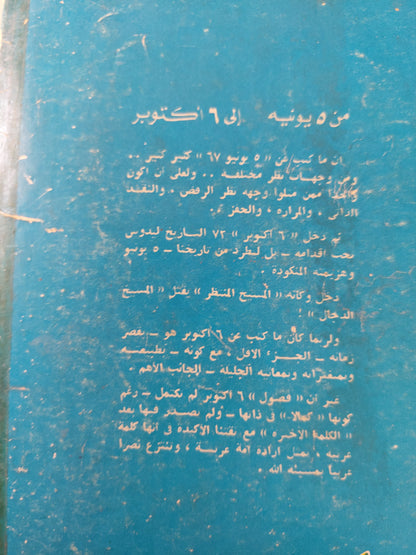 من ٥ يونيه إلى ٦ أكتوبر
ان ما كتب عن « ٥ يونيو ٦٧ » كثير كثير ..
ومن وجهات نظر مختلفة .. ولعلى ان اكون
واحدا ممن مثلوا وجهه نظر الرفض ، والنقد
الذاتى ، والمراره ، والحفز .
ثم دخل « ٦ أكتوبر » ٧٣ التاريخ ليدوس
تحت اقدامه ـ بل ليطرد من تاريخنا ـ ٥ يونيو
وهزيمته المنكودة .
دخل وكانه « المسيح المنتظر » يقتل « المسيخ
الدجال » !
ولربما كان ما كتب عن ٦ أكتوبر هو ـ بقصر
زمانه ـ الجزء الاقل ، مع كونه ـ بطبيعته
وبمتغيراته وبمعانيه الجليلة ـ الجانب الاهم .
غير ان « فصول » ٦ أكتوبر لم تكتمل ـ رغم
كونها « كمالا » فى ذاتها ـ ولم تصدر فيها بعد
« الكلمة الاخيره » مع يقيننا الاكيدة فى انها كلمة
عربيه ، تمثل ارادة أمة عربية ، وتنتزع نصرا
عربيا بمشيئه الله .